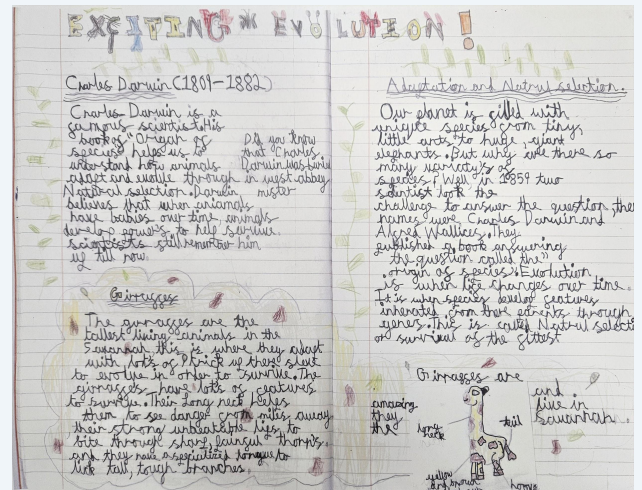 EXCITING EVOLUTION!
Charles Darwin (1809-1882)
Charles Darwin is a
famous scientist. His
book of "Origin of
species" helps us to
understand how animals
adapt and evolve through
Natural selection. Darwin
believes that when animals
have babies over time, animals
develop powers to help survive.
scientists still remember him
up till now.
Did you know
that Charles
Darwin was buried
in west-abbey
mister
Girrasses
The girrasses are the
tallest living animals in the
Savannah this is where they adapt
with lots of tricks up there sleve
to evolve in order to survive. The
girrasses have lots of features
to survive. Their long neck helps
them to see danger from miles away
their strong unbeatable lips, to
bite through sharp, thorns.
and they have a specialized tongue to
lick tall, tough branches.
Adaptation and Natrul selection.
Our planet is filled with
unique species from tiny,
little ants to huge, giant
elephants. But why are there so
many variatys of
species? Well in 1859 two
scientist took the
challenge to answer the question, there
names were Charles Darwin and
Alfred Wallices. They
published a book answering
the question called the"
origin of species". Evolution
is when life changes over time.
It is when species develop features
inherated from there parents through
genes. This is called Natrul selecti
or survival of the fittest
Girrasses are
amazing
they
the
and
live in
savannah.
long
neck
tail
yellow
and brown